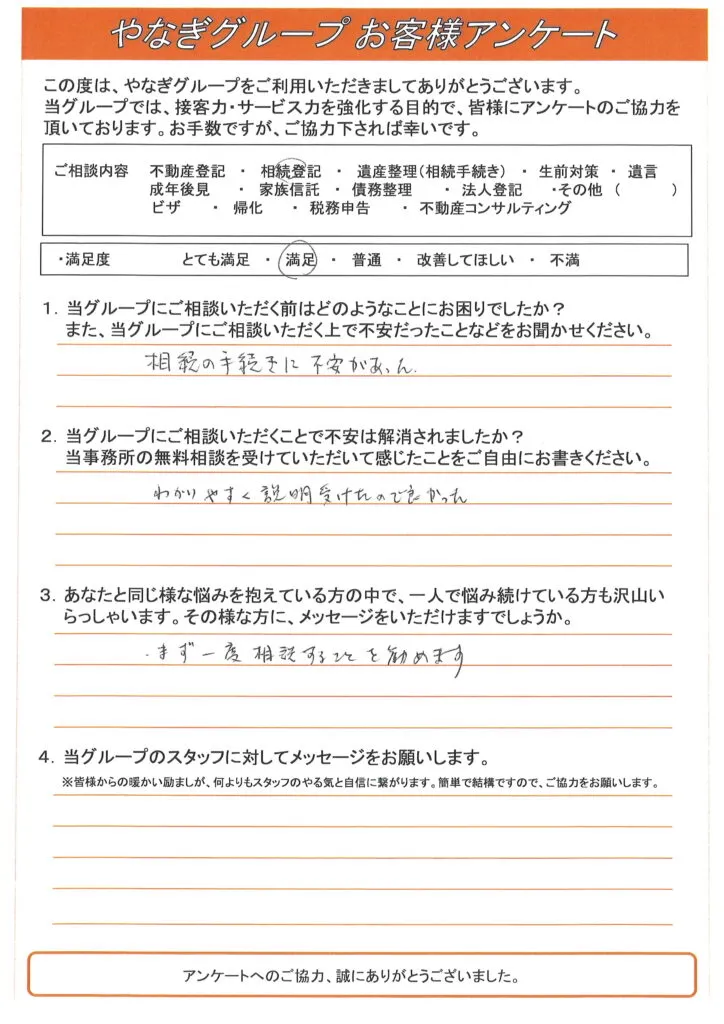 やなぎグループ お客様アンケート
この度は、やなぎグループをご利用いただきましてありがとうございます。
当グループでは、接客力・サービス力を強化する目的で、皆様にアンケートのご協力を
頂いております。お手数ですが、ご協力下されば幸いです。
ご相談内容 不動産登記 ・ 相続登記 ・ 遺産整理(相続手続き) ・ 生前対策 ・ 遺言
成年後見 ・ 家族信託 ・ 債務整理 ・ 法人登記 ・その他 ( )
ビザ ・ 帰化 ・ 税務申告 ・ 不動産コンサルティング
・満足度 とても満足 ・ 満足 ・ 普通 ・ 改善してほしい ・ 不満
1. 当グループにご相談いただく前はどのようなことにお困りでしたか?
また、当グループにご相談いただく上で不安だったことなどをお聞かせください。
相続の手続きに不安があった.
2. 当グループにご相談いただくことで不安は解消されましたか?
当事務所の無料相談を受けていただいて感じたことをご自由にお書きください。
わかりやすく説明受けたので良かった
3. あなたと同じ様な悩みを抱えている方の中で、一人で悩み続けている方も沢山い
らっしゃいます。その様な方に、メッセージをいただけますでしょうか。
・まず一度相談することを勧めます
4. 当グループのスタッフに対してメッセージをお願いします。
※皆様からの暖かい励ましが、何よりもスタッフのやる気と自信に繋がります。簡単で結構ですので、ご協力をお願いします。
アンケートへのご協力、誠にありがとうございました。